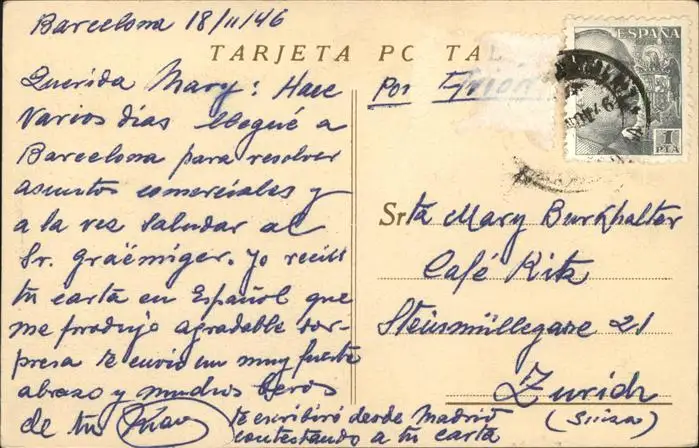 Barcelona 18/11/46
TARJETA POSTAL
Querida Mary: Hace
varios dias llegué a
Barcelona para resolver
asuntos comerciales y
a la vez saludar al
Sr. Graémiger. Yo recibi
tu carta en Español que
me produjo agradable sor-
presa te envio un muy fuerte
abrazo y muchos besos
de tu Juan
te escribiré desde Madrid
contestando a tu carta
Por Avión
ESPAÑA
1
PTA
Srta Mary Burkhalter
Café Ritz
Steinmüllegasse 21
Zurich
(Suiza)